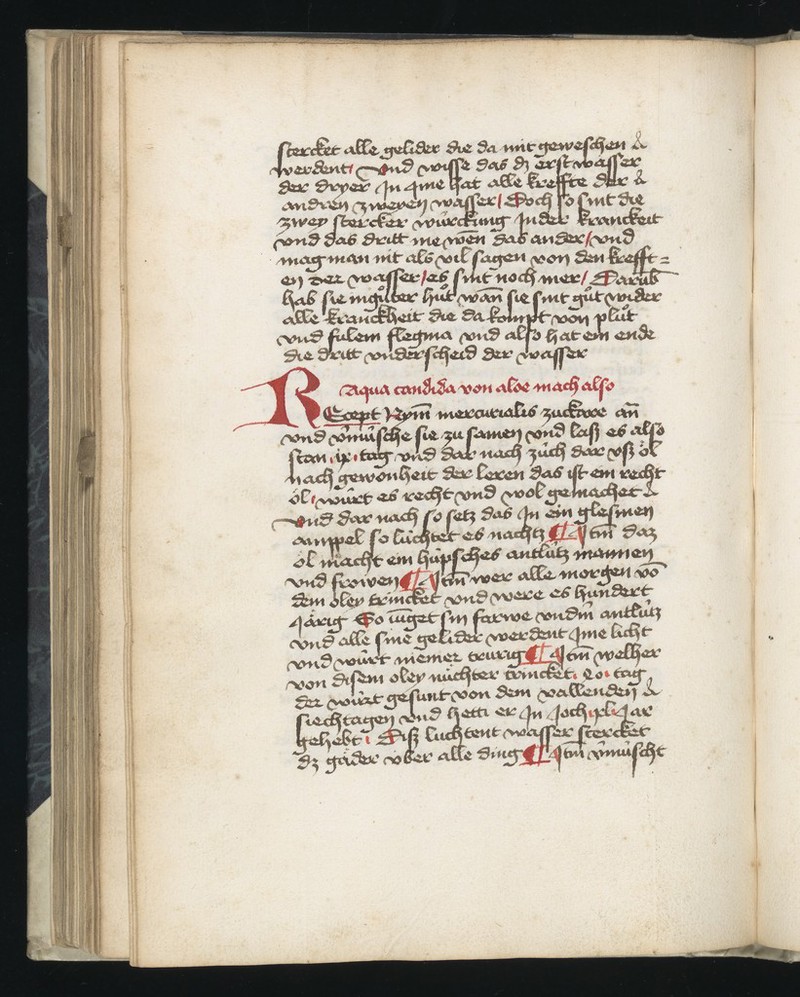 stercket alle gelider die da mit geweschen
werdent / Vnd wisse das dz erst wasser
der dryer Jn Jme hat alle kreffte der
andren zweyen wasser / Doch so sint die
zwey stercker würckung Jnder kranckeit
vnd das dritt me wen̄ das ander / vnd
mag man nit als vil sagen von den krefft=
en der wasser / es sint noch mer / Darūb
hab sie in gůter hůt wan̄ sie sint gůt wider
alle kranckheit die da kompt von plůt
vnd fulem flegma vnd also hat ein ende
die dritt vnderscheid der wasser
Aqua candida von aloe mach also
REcept Nym̄ mercurialis zuckare an̄
vnd v̄müsche sie zu samen vnd laß es also
stan .ix. tag vnd dar nach züch dar vß öl
nach gewonheit der leren das ist ein recht
öl / würt es recht vnd wol gemachet
Vnd dar nach so setz das Jn ein glesinen
ampel so lüchtet es nachtz ¶ Jtm̄ daz
öl macht ein hüpsches antlütz mannen
vnd frowen ¶ Jtm̄ wer alle morgen vō
dem öley trincket vnd were es hundert
Järig So v̄iüget sin farwe vnd in antlütz
vnd alle sine gelider werdent Jme licht
vnd würt niemer trurig ¶ Jtm̄ welher
von disem oley nüchter trincket. 20. tag
der würt gesunt von dem vallenden
siechtagen vnd hett er Jn Joch .xl. Jar
gehebt / Diß luchtent wasser stercket
dz gäder vber alle ding ¶ Jtm̄ v̄müscht